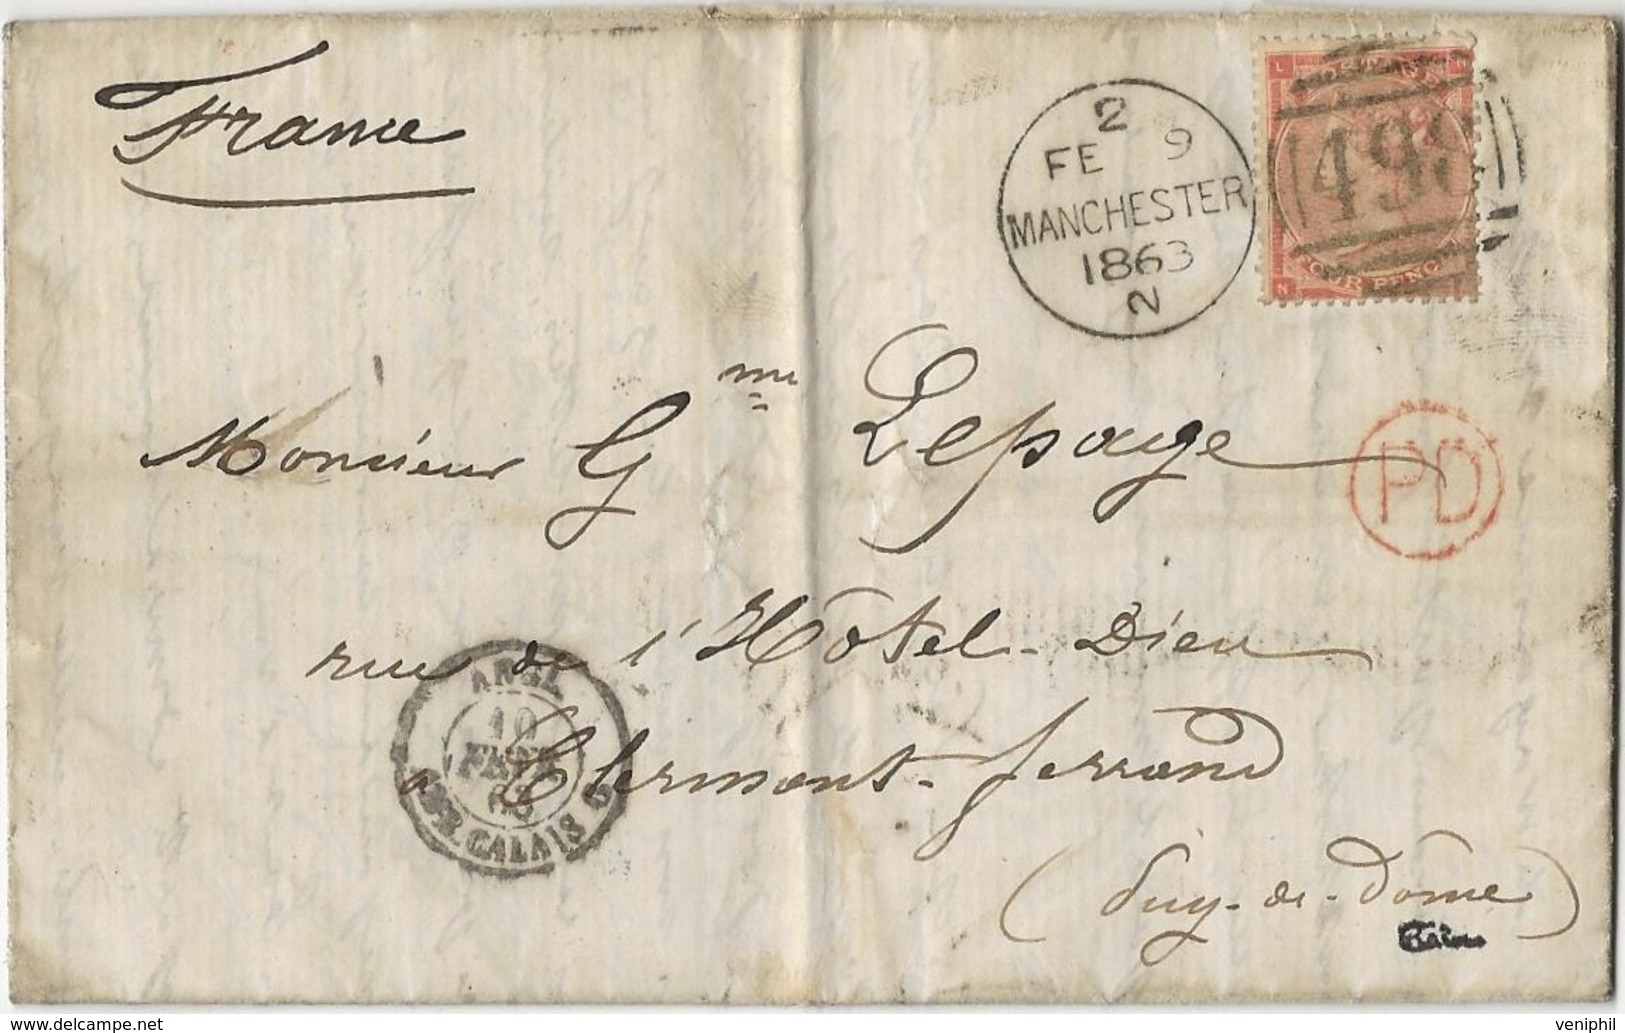 France
2
FE 9
MANCHESTER
1863
2
498
L N
N
FOUR PENCE
Monsieur Gme Lepage
PD
rue de l'Hôtel-Dieu
à Clermont-ferrand
(Puy-de-Dôme)
ANGL.
10
FEVR
63
AMB. CALAIS G
www.delcampe.net
veniphil